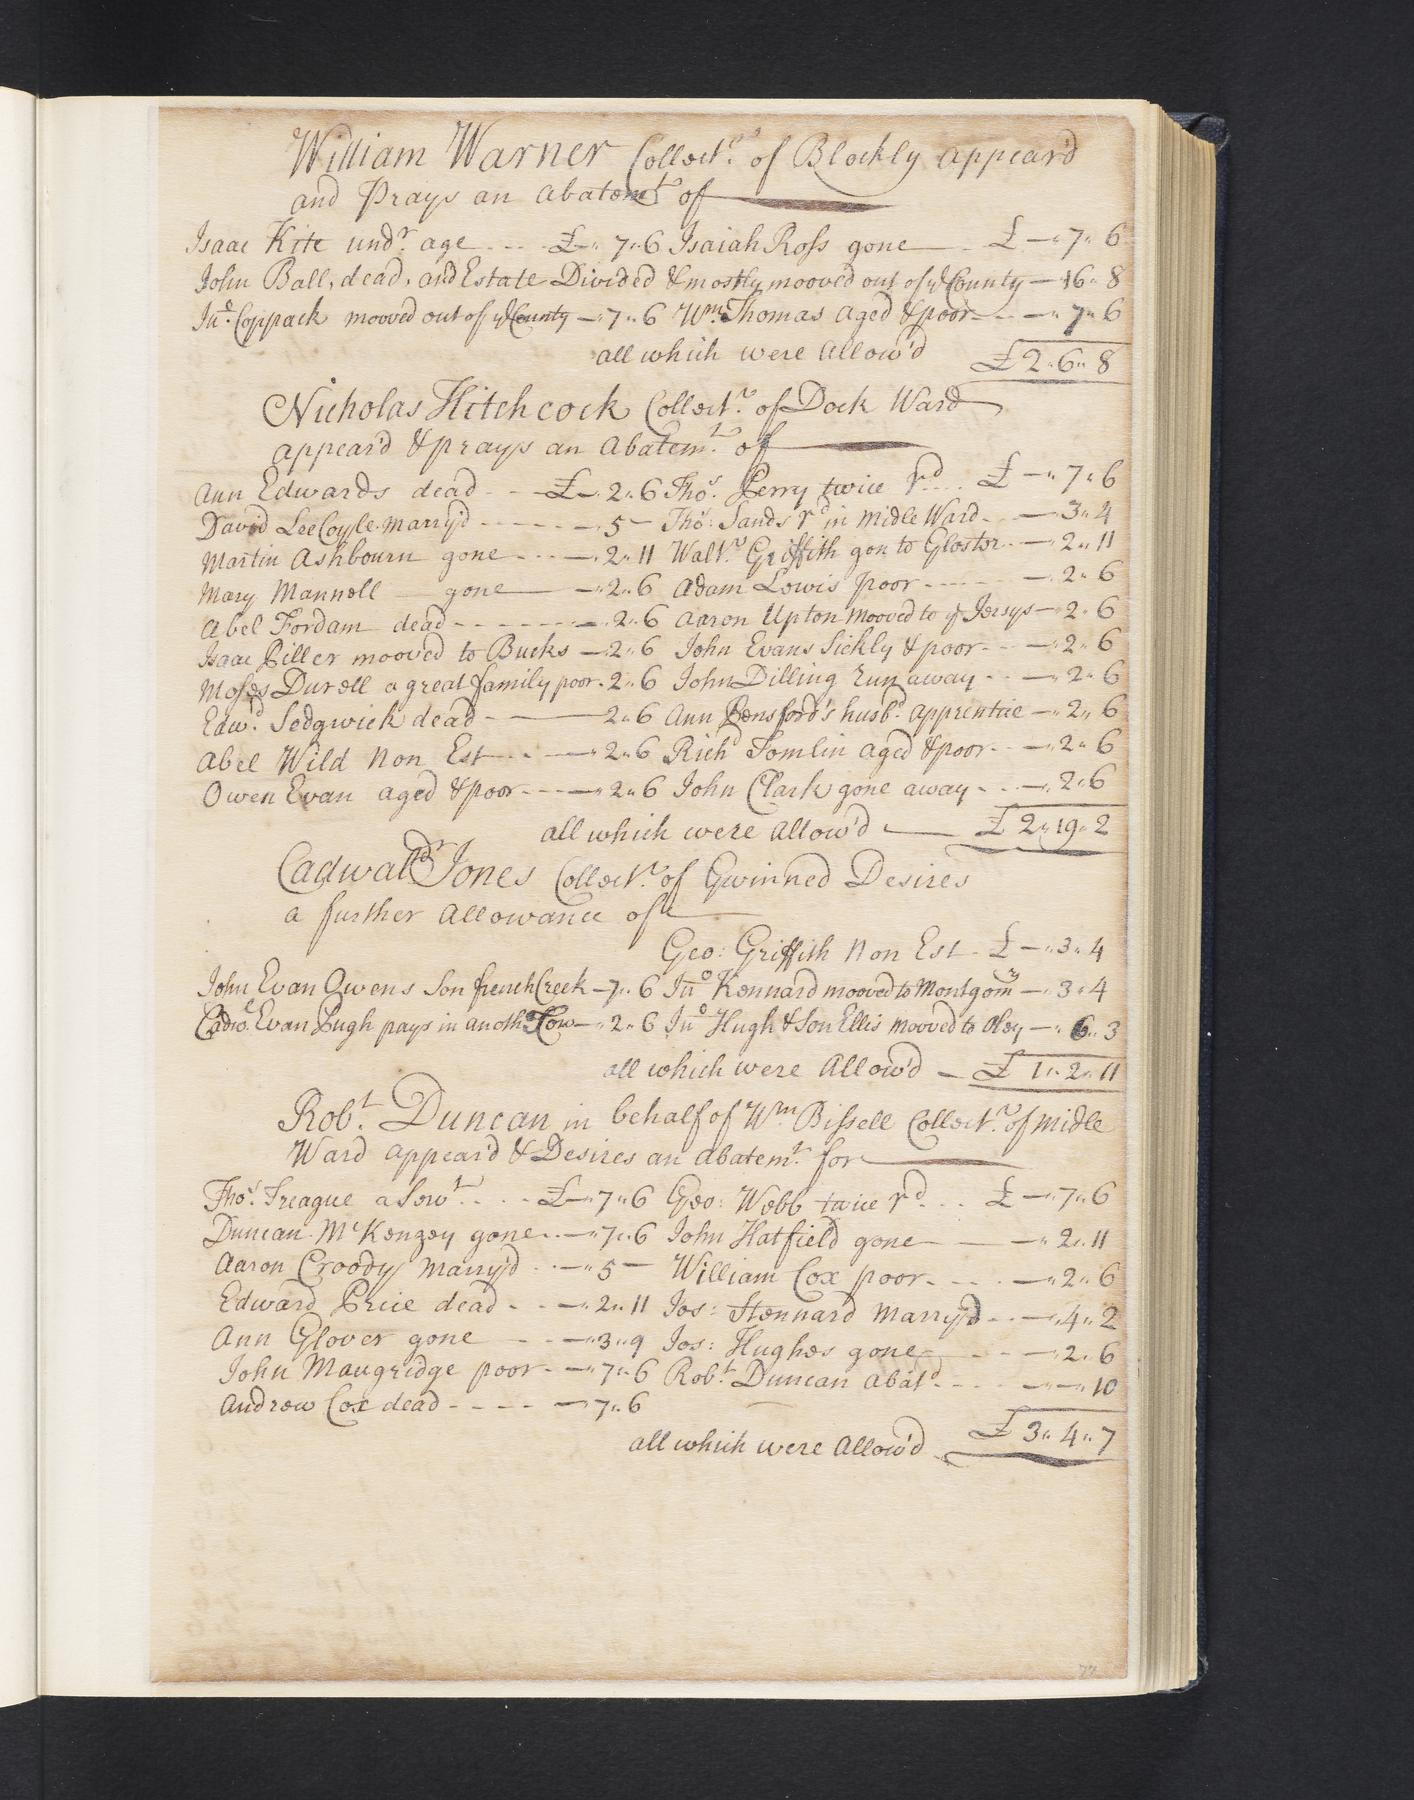 William Warner Collectr. of Blockly appear'd
and Prays an abatemt of
Isaac Kite undr. age - - - £ - " 7 " 6 Isaiah Ross gone - £ - " 7 " 6
John Ball, dead, and Estate Divided & mostly mooved out of ye County - 16 " 8
Jno. Coppack mooved out of ye County - " 7 " 6 Wm. Thomas aged & poor - - - " 7 " 6
all which were allow'd £ 2 " 6 " 8
Nicholas Hitchcock Collectr. of Dock Ward
appear'd & prays an abatemt. of
Ann Edwards dead - - £ - " 2 " 6 Thos. Perry twice rd. . . £ - " 7 " 6
David LeeCoyle marry'd - - - - - " 5 - Thos: Sands rd in midle Ward - - 3 " 4
Martin Ashbourn gone - - - " 2 " 11 Waltr. Griffith gon to Gloster - - " 2 " 11
Mary Mannell gone - " 2 " 6 Adam Lewis poor - - - - - " 2 " 6
Abel Fordam dead - - - - - - " 2 " 6 Aaron Upton mooved to ye Jersys - " 2 " 6
Isaac Piller mooved to Bucks - " 2 " 6 John Evans Sickly & poor - - - " 2 " 6
Moses Durell a great family poor - 2 " 6 John Dilling run away - - - " 2 " 6
Edwd. Sedgwick dead - - 2 " 6 Ann Pensford's husbd. apprentice - " 2 " 6
Abel Wild Non Est - - - " 2 " 6 Richd Tomlin aged & poor - - - " 2 " 6
Owen Evan aged & poor - - - " 2 " 6 John Clark gone away - - - " 2 " 6
all which were allow'd £ 2 " 19 " 2
Cadwaldr Jones Collectr. of Gwinned Desires
a further allowance of
Geo: Griffith Non Est - £ - " 3 " 4
John Evan Owens Son french Creek - 7 " 6 Jno Kennard mooved to Montgomy - " 3 " 4
Cadwr. Evan Pugh pays in anothr Tow - " 2 " 6 Jno Hugh & Son Ellis mooved to Oley - " 6 " 3
all which were allow'd - £ 1 " 2 " 11
Robt. Duncan in behalf of Wm Bissell Collectr. of midle
Ward appear'd & Desires an abatemt. for
Thos. Treague a Servt. . . . £ - " 7 " 6 Geo: Webb twice rd . . . £ - " 7 " 6
Duncan McKenzey gone - - " 7 " 6 John Hatfield gone - " 2 " 11
Aaron Croody marry'd - - " 5 - William Cox poor - - - - " 2 " 6
Edward Price dead - - - " 2 " 11 Jos: Stennard marry'd - - - " 4 " 2
Ann Glover gone - - - " 3 " 9 Jos: Hughes gone - - - " 2 " 6
John Maugridge poor - - " 7 " 6 Robt. Duncan abatd. - - - - " - " 10
Andrew Cox dead - - - - - 7 " 6
all which were allow'd £ 3 " 4 " 7
77